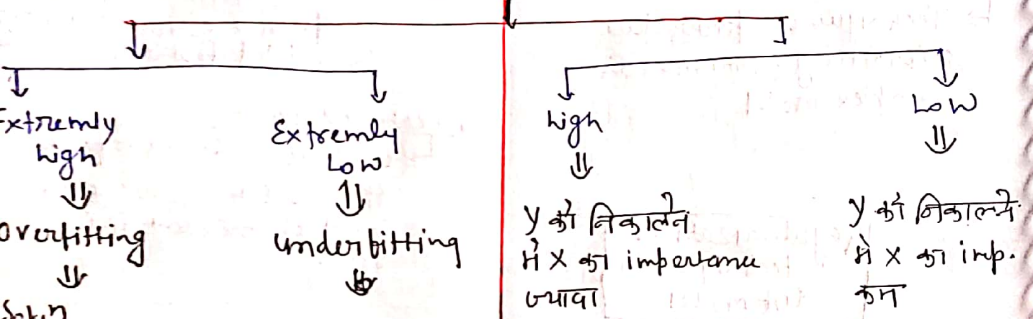 Extremly
high
Overfitting
Extremly
Low
underfitting
high
y को निकालने
में x का importance
ज्यादा
Low
y को निकालने
में x का imp.
कम